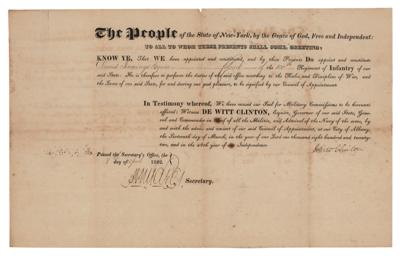 The People of the State of New-York, by the Grace of God, Free and Independent:
TO ALL TO WHOM THESE PRESENTS SHALL COME, GREETING:
KNOW YE, That WE have appointed and constituted, and by these Presents DO appoint and constitute
of the Regiment of Infantry of our
said State: He is therefore to perform the duties of the said office according to the Rules and Discipline of War, and
the Laws of our said State, for and during our good pleasure, to be signified by our Council of Appointment.
In Testimony whereof, We have caused our Seal for Military Commissions to be hereunto
affixed: Witness DE WITT CLINTON, Esquire, Governor of our said State, General
and Commander in Chief of all the Militia, and Admiral of the Navy of the same, by
and with the advice and consent of our said Council of Appointment, at our City of Albany,
the day of March, in the year of our Lord one thousand eight hundred and twenty-
two, and in the year of our Independence.
Passed the Secretary's Office, the
day of 1822.
Secretary.
DeWitt Clinton